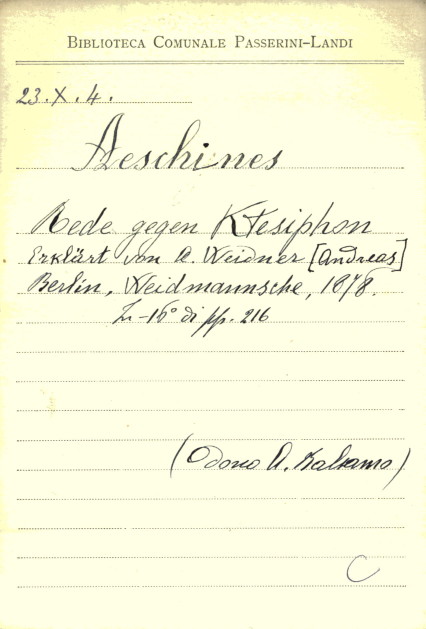 BIBLIOTECA COMUNALE PASSERINI-LANDI
23.X.4.
Aeschines
Rede gegen Ktesiphon
Erklärt von A. Weidner [Andreas]
Berlin, Weidmannsche, 1878.
In-16° di pp. 216
(Dono A. Balsamo)
C